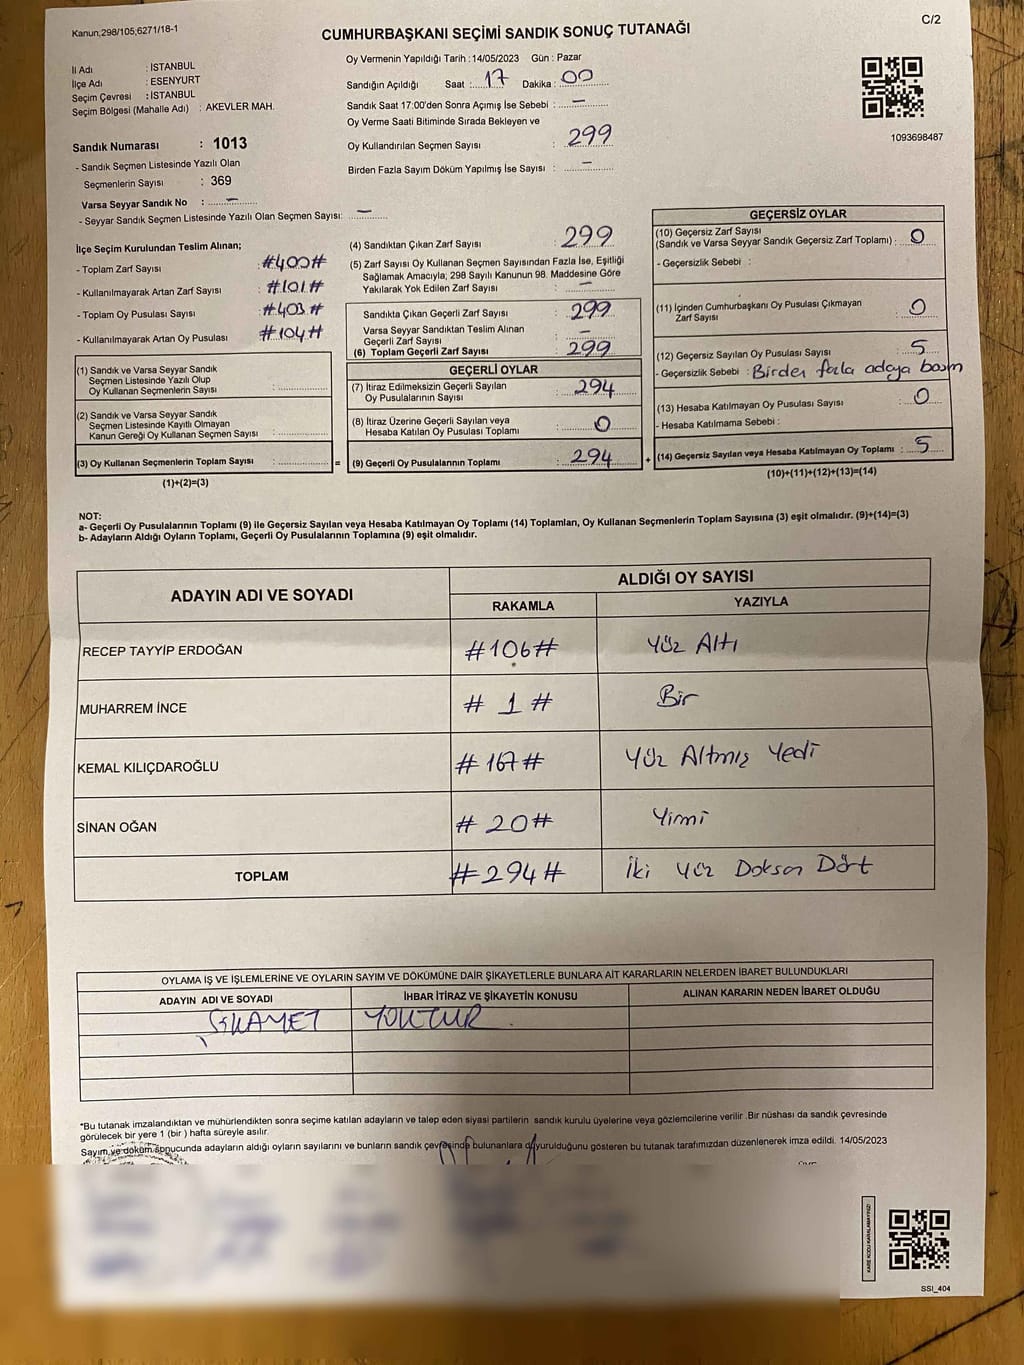 Kanun,298/105,6271/18-1
CUMHURBAŞKANI SEÇİMİ SANDIK SONUÇ TUTANAĞI
C/2
İl Adı : İSTANBUL
İlçe Adı : ESENYURT
Seçim Çevresi : İSTANBUL
Seçim Bölgesi (Mahalle Adı) : AKEVLER MAH.
Sandık Numarası : 1013
- Sandık Seçmen Listesinde Yazılı Olan
Seçmenlerin Sayısı : 369
Varsa Seyyar Sandık No : -
- Seyyar Sandık Seçmen Listesinde Yazılı Olan Seçmen Sayısı: -
Oy Vermenin Yapıldığı Tarih :14/05/2023 Gün : Pazar
Sandığın Açıldığı Saat : 17 Dakika : 00
Sandık Saat 17:00'den Sonra Açımış İse Sebebi : -
Oy Verme Saati Bitiminde Sırada Bekleyen ve
Oy Kullandırılan Seçmen Sayısı : 299
Birden Fazla Sayım Döküm Yapılmış İse Sayısı : -
1093698487
İlçe Seçim Kurulundan Teslim Alınan;
- Toplam Zarf Sayısı : #400#
- Kullanılmayarak Artan Zarf Sayısı : #101#
- Toplam Oy Pusulası Sayısı : #403#
- Kullanılmayarak Artan Oy Pusulası #104#
(1) Sandık ve Varsa Seyyar Sandık
Seçmen Listesinde Yazılı Olup
Oy Kullanan Seçmenlerin Sayısı :
(2) Sandık ve Varsa Seyyar Sandık
Seçmen Listesinde Kayıtlı Olmayan
Kanun Gereği Oy Kullanan Seçmen Sayısı :
(3) Oy Kullanan Seçmenlerin Toplam Sayısı : =
(1)+(2)=(3)
(4) Sandıktan Çıkan Zarf Sayısı : 299
(5) Zarf Sayısı Oy Kullanan Seçmen Sayısından Fazla İse, Eşitliği
Sağlamak Amacıyla; 298 Sayılı Kanunun 98. Maddesine Göre
Yakılarak Yok Edilen Zarf Sayısı : -
Sandıkta Çıkan Geçerli Zarf Sayısı : 299
Varsa Seyyar Sandıktan Teslim Alınan
Geçerli Zarf Sayısı : -
(6) Toplam Geçerli Zarf Sayısı : 299
GEÇERLİ OYLAR
(7) İtiraz Edilmeksizin Geçerli Sayılan
Oy Pusulalarının Sayısı : 294
(8) İtiraz Üzerine Geçerli Sayılan veya
Hesaba Katılan Oy Pusulası Toplamı : 0
(9) Geçerli Oy Pusulalarının Toplamı : 294 +
GEÇERSİZ OYLAR
(10) Geçersiz Zarf Sayısı
(Sandık ve Varsa Seyyar Sandık Geçersiz Zarf Toplamı) : 0
- Geçersizlik Sebebi :
(11) İçinden Cumhurbaşkanı Oy Pusulası Çıkmayan
Zarf Sayısı : 0
(12) Geçersiz Sayılan Oy Pusulası Sayısı : 5
- Geçersizlik Sebebi : Birden fazla adaya basım
(13) Hesaba Katılmayan Oy Pusulası Sayısı : 0
- Hesaba Katılmama Sebebi :
(14) Geçersiz Sayılan veya Hesaba Katılmayan Oy Toplamı : 5
(10)+(11)+(12)+(13)=(14)
NOT:
a- Geçerli Oy Pusulalarının Toplamı (9) ile Geçersiz Sayılan veya Hesaba Katılmayan Oy Toplamı (14) Toplamları, Oy Kullanan Seçmenlerin Toplam Sayısına (3) eşit olmalıdır. (9)+(14)=(3)
b- Adayların Aldığı Oyların Toplamı, Geçerli Oy Pusulalarının Toplamına (9) eşit olmalıdır.
ADAYIN ADI VE SOYADI ALDIĞI OY SAYISI
RAKAMLA YAZIYLA
RECEP TAYYİP ERDOĞAN #106# Yüz Altı
MUHARREM İNCE # 1 # Bir
KEMAL KILIÇDAROĞLU # 167# Yüz Altmış Yedi
SİNAN OĞAN # 20# Yirmi
TOPLAM #294# İki Yüz Doksan Dört
OYLAMA İŞ VE İŞLEMLERİNE VE OYLARIN SAYIM VE DÖKÜMÜNE DAİR ŞİKAYETLERLE BUNLARA AİT KARARLARIN NELERDEN İBARET BULUNDUKLARI
ADAYIN ADI VE SOYADI İHBAR İTİRAZ VE ŞİKAYETİN KONUSU ALINAN KARARIN NEDEN İBARET OLDUĞU
ŞİKAYET YOKTUR.
*Bu tutanak imzalandıktan ve mühürlendikten sonra seçime katılan adayların ve talep eden siyasi partilerin sandık kurulu üyelerine veya gözlemcilerine verilir .Bir nüshası da sandık çevresinde
görülecek bir yere 1 (bir ) hafta süreyle asılır.
Sayım ve döküm sonucunda adayların aldığı oyların sayılarını ve bunların sandık çevresinde bulunanlara duyurulduğunu gösteren bu tutanak tarafımızdan düzenlenerek imza edildi. 14/05/2023
KARE KODU KARALAMAYINIZ!
SSI_404